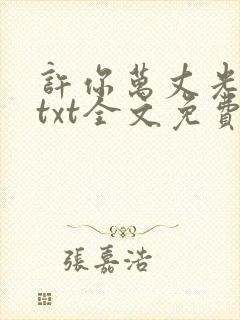 許你萬丈光
txt全文免費
張嘉浩